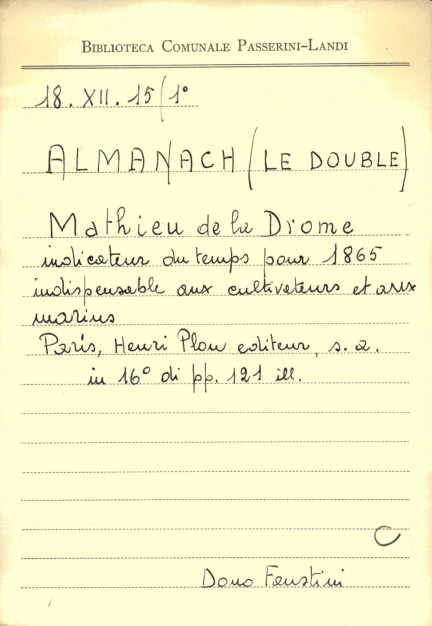 BIBLIOTECA COMUNALE PASSERINI-LANDI
18. XII. 15/1°
ALMANACH (LE DOUBLE)
Mathieu de la Drome
indicateur du temps pour 1865
indispensable aux cultivateurs et aux
marins
Paris, Henri Plon editeur, s. a.
in 16° di pp. 121 ill.
C
Dono Faustini